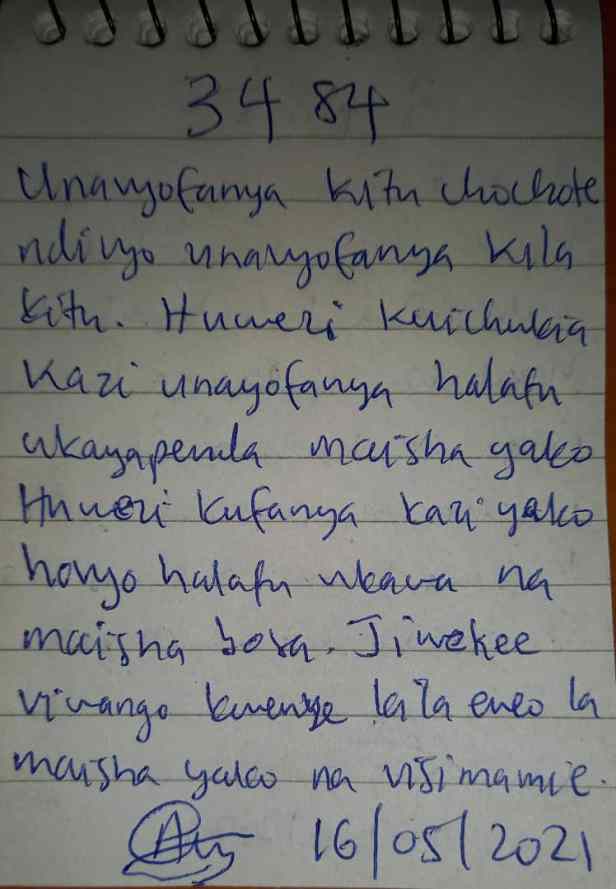 3484
Unavyofanya kitu chochote
ndivyo unavyofanya kila
kitu. Huwezi kuichukia
kazi unayofanya halafu
ukayapenda maisha yako
Huwezi kufanya kazi yako
hovyo halafu ukawa na
maisha bora. Jiwekee
viwango kwenye kila eneo la
maisha yako na visimamie.
16/05/2021